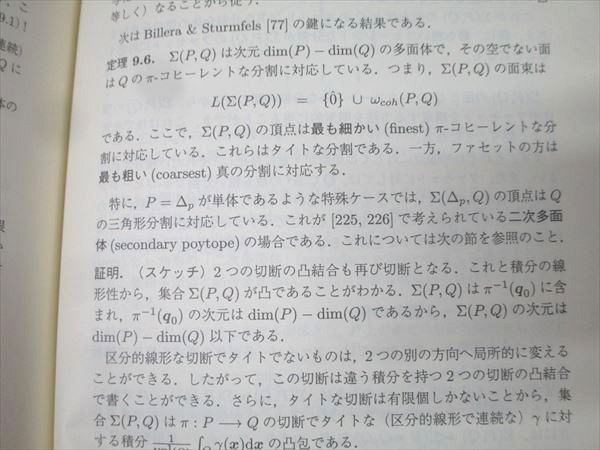 等しく）なることから従う．
次は Billera & Sturmfels [77] の鍵になる結果である．
定理 9.6. Σ(P,Q) は次元 dim(P) − dim(Q) の多面体で，その空でない面
は Q の π-コヒーレントな分割に対応している．つまり，Σ(P,Q) の面束は
L(Σ(P,Q)) = {0̂} ∪ ω_coh(P,Q)
である．ここで，Σ(P,Q) の頂点は最も細かい (finest) π-コヒーレントな分
割に対応している．これらはタイトな分割である．一方，ファセットの方は
最も粗い (coarsest) 真の分割に対応する．
特に，P = Δ_p が単体であるような特殊ケースでは，Σ(Δ_p,Q) の頂点は Q
の三角形分割に対応している．これが [225, 226] で考えられている二次多面
体 (secondary poytope) の場合である．これについては次の節を参照のこと．
証明．（スケッチ）2 つの切断の凸結合も再び切断となる．これと積分の線
形性から，集合 Σ(P,Q) が凸であることがわかる．Σ(P,Q) は π⁻¹(q₀) に含
まれ，π⁻¹(q₀) の次元は dim(P) − dim(Q) であるから，Σ(P,Q) の次元は
dim(P) − dim(Q) 以下である．
区分的線形な切断でタイトでないものは，2 つの別の方向へ局所的に変える
ことができる．したがって，この切断は違う積分を持つ 2 つの切断の凸結合
で書くことができる．さらに，タイトな切断は有限個しかないことから，集
合 Σ(P,Q) は π : P ⟶ Q の切断でタイトな（区分的線形で連続な）γ に対
する積分 ∫ γ(x)dx の凸包である．